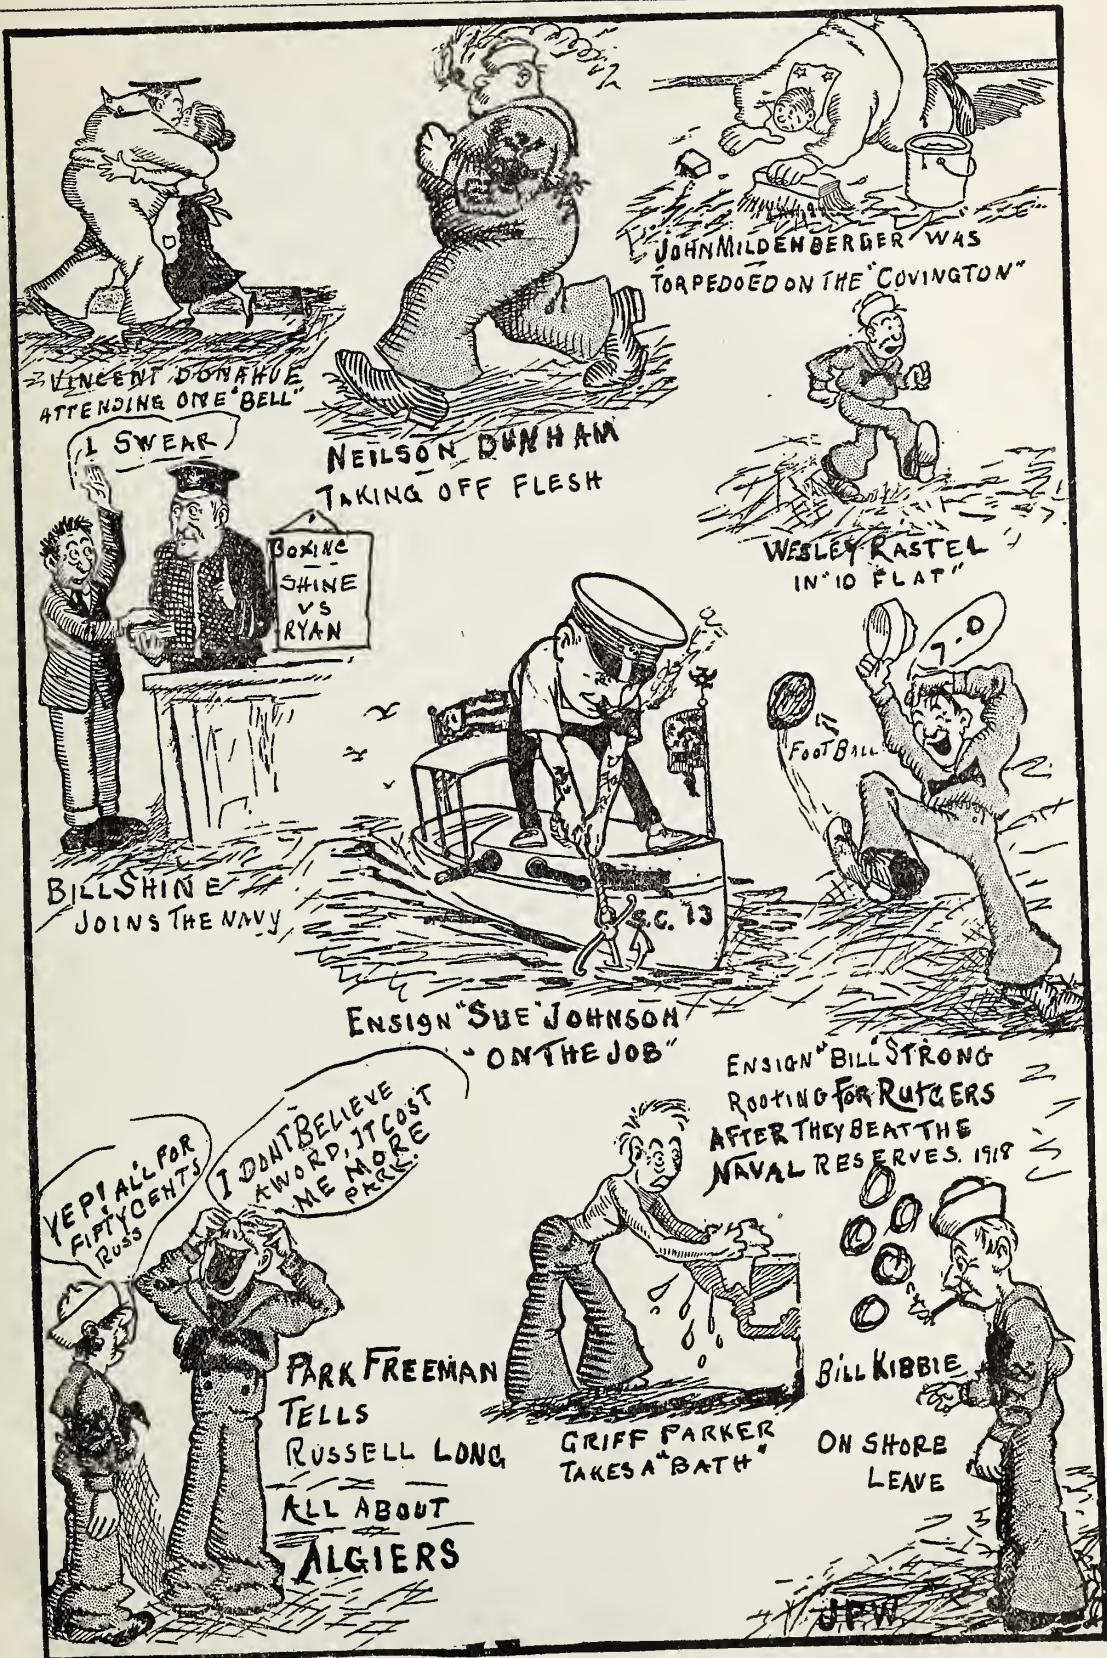 VINCENT DONAHUE
ATTENDING ONE "BELL"
NEILSON DUNHAM
TAKING OFF FLESH
JOHN MILDENBERGER WAS
TORPEDOED ON THE "COVINGTON"
WESLEY RASTEL
IN "10 FLAT"
I SWEAR
BOXING
SHINE
VS
RYAN
BILL SHINE
JOINS THE NAVY
S.C. 13
ENSIGN "SUE" JOHNSON
"ON THE JOB"
7-0
FOOTBALL
ENSIGN "BILL" STRONG
ROOTING FOR RUTGERS
AFTER THEY BEAT THE
NAVAL RESERVES. 1918
YEP! ALL FOR
FIFTY CENTS
RUSS
I DONT BELIEVE
A WORD, IT COST
ME MORE
PARK.
PARK FREEMAN
TELLS
RUSSELL LONG
ALL ABOUT
ALGIERS
GRIFF PARKER
TAKES A "BATH"
BILL KIBBIE
ON SHORE
LEAVE
J.P.W.